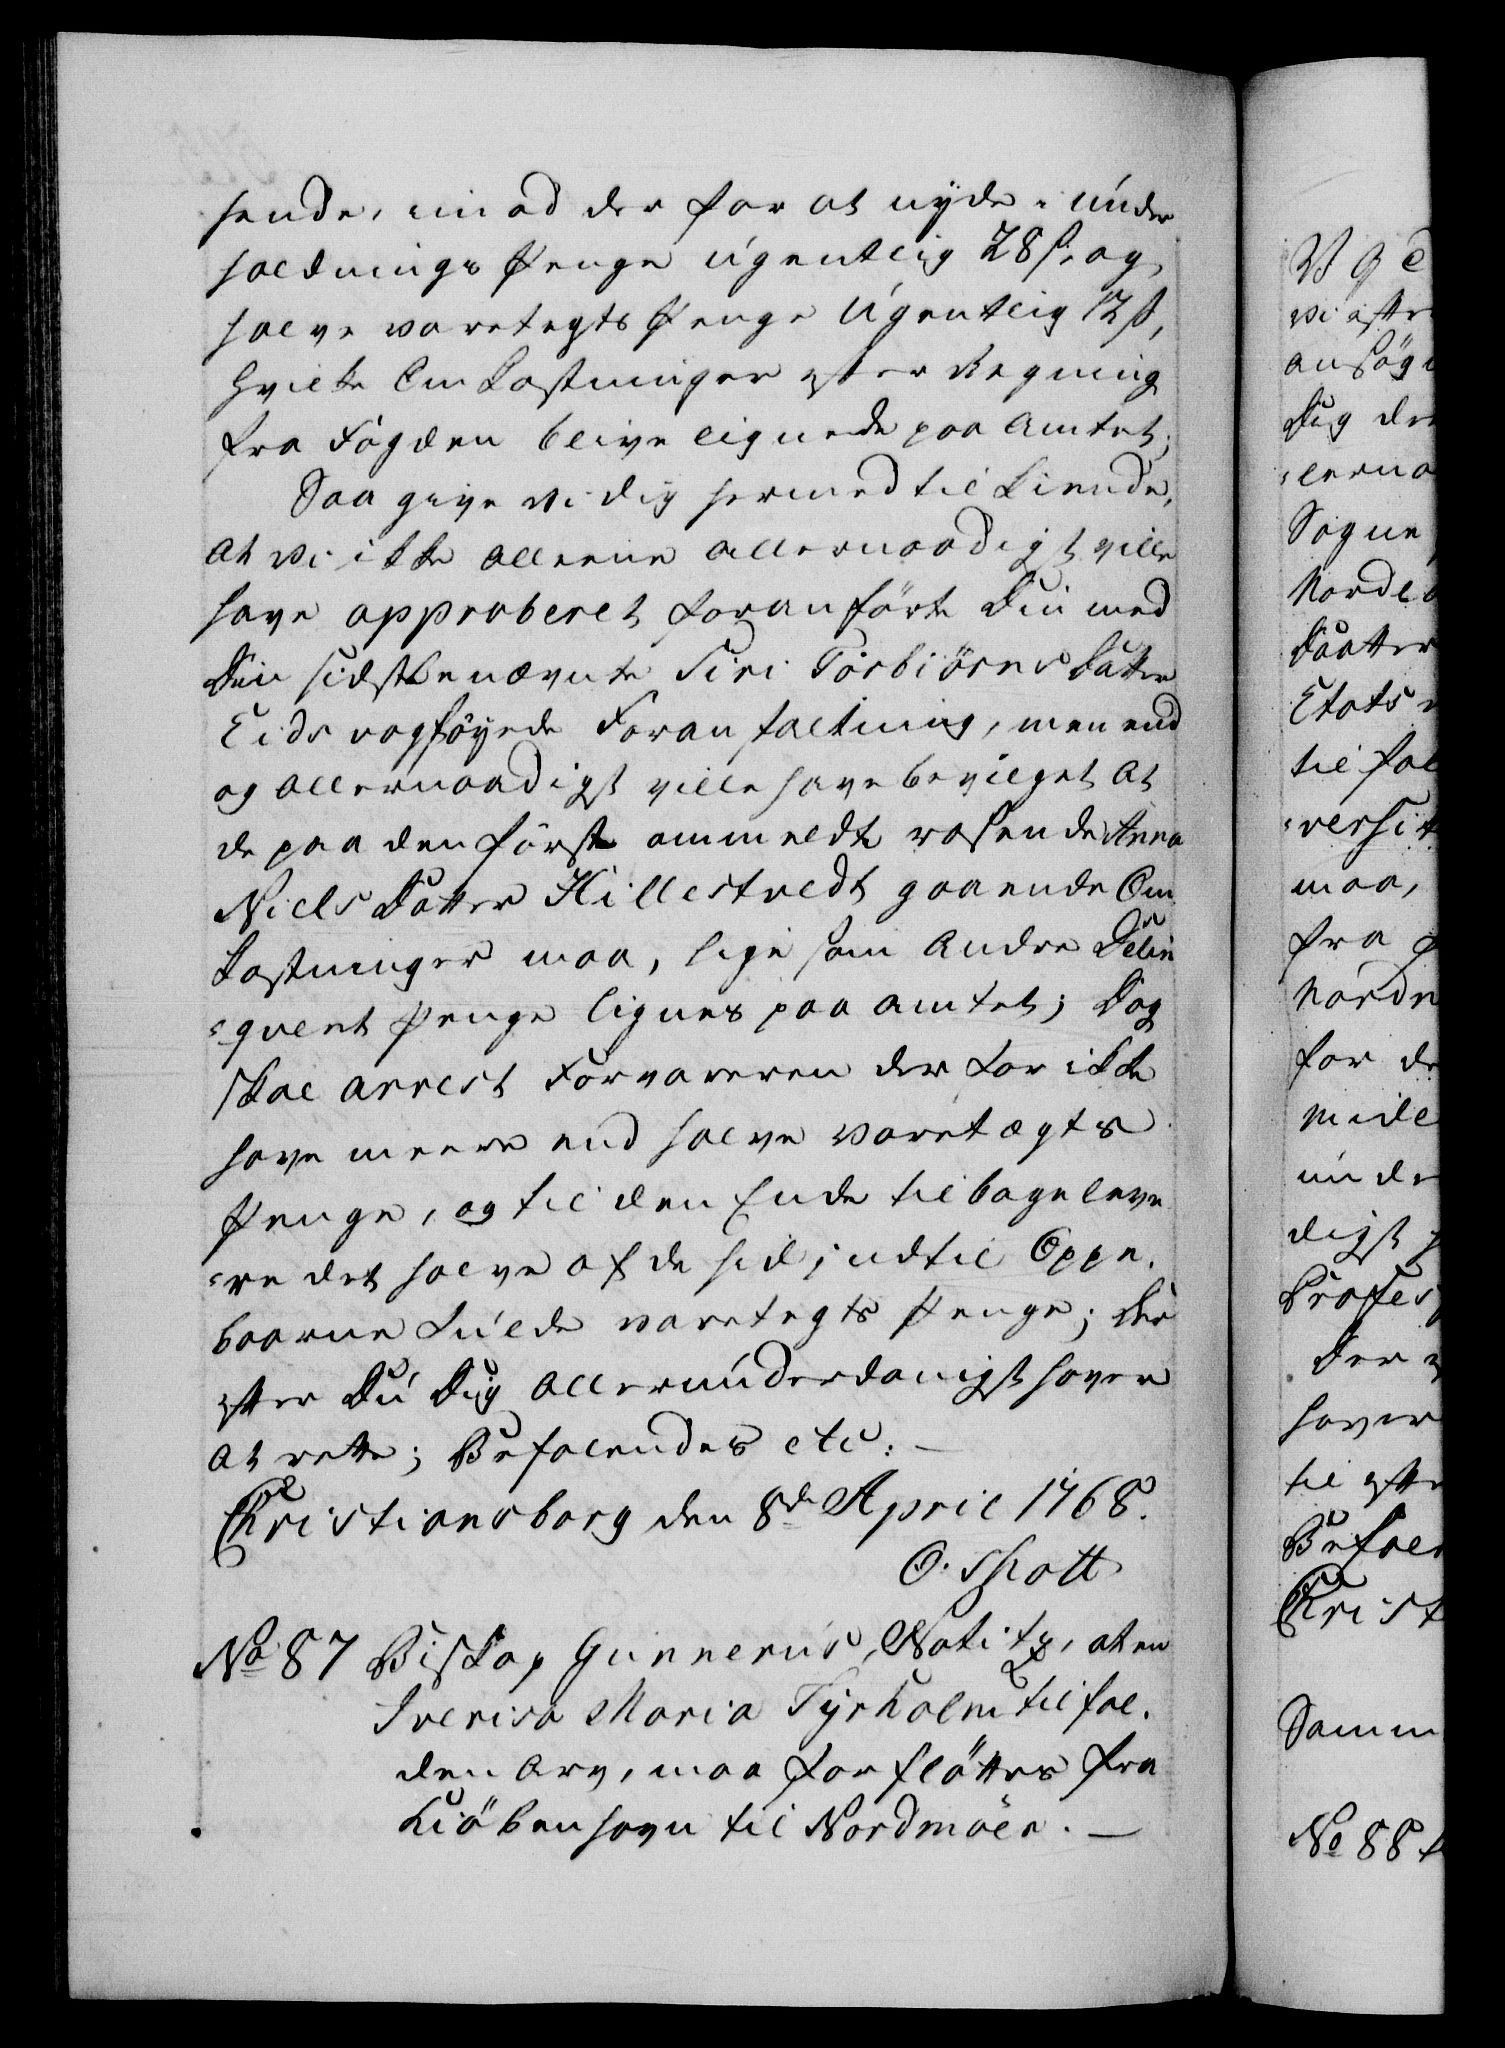 hende, imod der for at nyde i under
holdnings Penge ugentlig 28 s, og
halve varetegts Penge Ugentlig 12 s,
hvilke Omkostninger efter Regning
fra Fogden blive lignede paa Amtet;
Saa give vi dig hermed til Kiende,
at vi ikke alleene allernaadigst ville
have approberet foranførte Din med
Den sidstbenævnte Siri Torbiörns Datter
Eidsvog föyede Foranstaltning, men end
og allernaadigst ville have bevilget at
de paa den först ommeldte rasende Anna
Niels Datter Hillestvedt gaaende Om
kostninger maa, lige som Andre Delin
=qvent Penge lignes paa Amtet; Dog
skal Arrest Forvareren derfor ikke
have meere end halve varetægts
Penge, og til den Ende tilbageleve
=re det halve af de hid indtil Oppe.
baarne fulde varetegts Penge; Der
efter Du Dig allerunderdanigst haver
at rette; Befalendes etc. —
Christiansborg den 8de April 1768.
O. Thott
No 87 Biskop Gunnerus Notitz, at en
Maria Tyrholm tilfal.
den Arv, maa forflöttes fra
Kiöbenhavn til Nordmöer. —
V G C
vi efter
ansög
Dig de
Sogne
Nordl
Daatter
Etats
til fal
maa,
fra
Nordm
for de
Mide
unde
digst
Profes
Der
haver
til efte
Befal
Christ
Samm
No 88